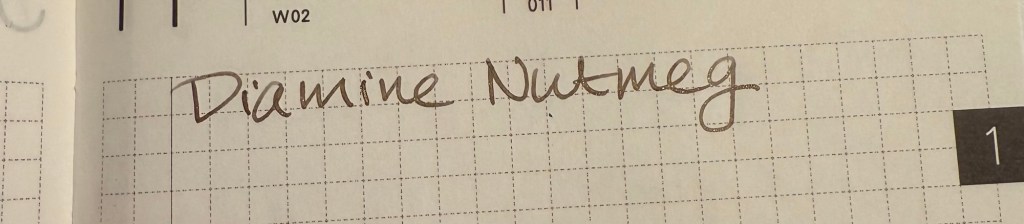 W02 011
Diamine Nutmeg
1